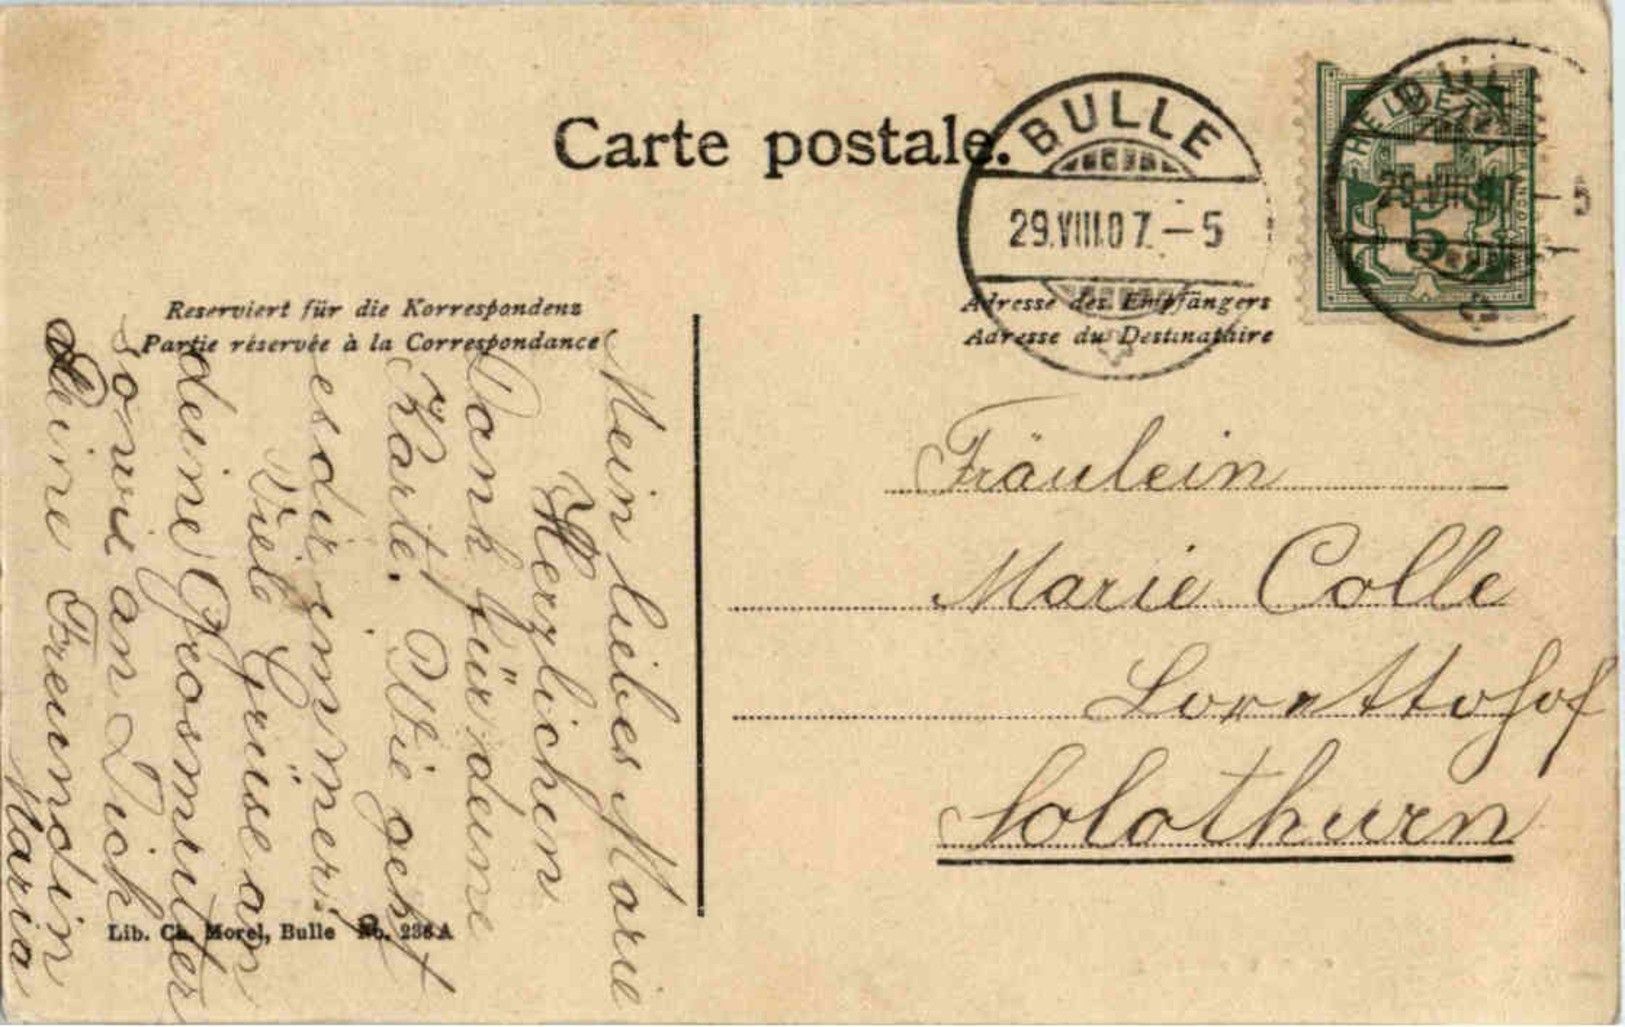 Carte postale.
BULLE
29.VIII.07.–5
HELVETIA
5
Reserviert für die Korrespondenz
Partie réservée à la Correspondance
Adresse des Empfängers
Adresse du Destinataire
Mein liebes Marie
Herzlichen
Dank für deine
Karte. Wie geht
es dir immer?
Viele Grüse an
deine Grosmutter
sowie an Dich
Deine Freundin
Maria
Fräulein
Marie Colle
Lorettohof
Solothurn
Lib. Ch. Morel, Bulle No. 236 A